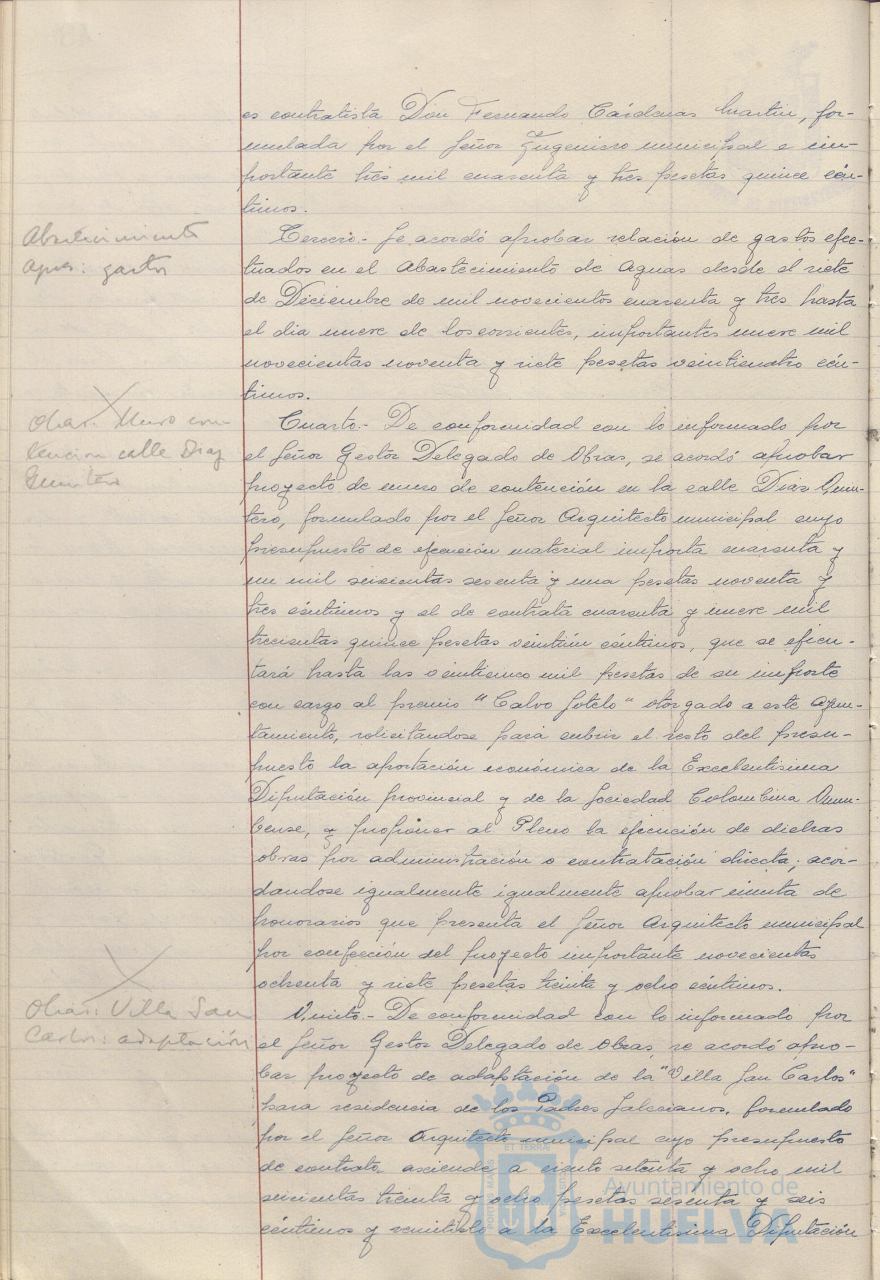 es contratista Don Fernando Cárdenas Martin, for-
mulada por el Señor Ingeniero municipal e im-
portante tres mil cuarenta y tres pesetas quince cén-
timos.
Abastecimiento
apro: gastos
Tercero.- Se acordó aprobar relación de gastos efec-
tuados en el Abastecimiento de Aguas desde el siete
de Diciembre de mil novecientos cuarenta y tres hasta
el dia nueve de los corrientes, importantes nueve mil
novecientas noventa y siete pesetas veinticuatro cén-
timos.
Obras: Muro con-
tencion calle Diaz
Quintero
Cuarto.- De conformidad con lo informado por
el Señor Gestor Delegado de Obras, se acordó aprobar
proyecto de muro de contención en la calle Diaz Quin-
tero, formulado por el Señor Arquitecto municipal cuyo
presupuesto de ejecución material importa cuarenta y
un mil seiscientas sesenta y una pesetas noventa y
tres céntimos y el de contrata cuarenta y nueve mil
trecientas quince pesetas veintiún céntimos, que se ejecu-
tará hasta las veinticinco mil pesetas de su importe
con cargo al premio "Calvo Sotelo" otorgado a este Ayun-
tamiento, solicitandose para cubrir el resto del presu-
puesto la aportación económica de la Excelentisima
Diputación provincial y de la Sociedad Colombina Onu-
bense, y proponer al Pleno la ejecución de dichas
obras por administración o contratación directa; acor-
dandose igualmente igualmente aprobar minuta de
honorarios que presenta el Señor Arquitecto municipal
por confección del proyecto importante novecientas
ochenta y siete pesetas treinta y ocho céntimos.
Obras: Villa San
Carlos: adaptación
Quinto.- De conformidad con lo informado por
el Señor Gestor Delegado de Obras, se acordó apro-
bar proyecto de adaptación de la "Villa San Carlos"
para residencia de los Padres Salecianos, formulado
por el Señor Arquitecto municipal cuyo presupuesto
de contrata asciende a ciento setenta y ocho mil
seiscientas treinta y ocho pesetas sesenta y seis
céntimos y remitirlo a la Excelentisima Diputación
Ayuntamiento de
HUELVA